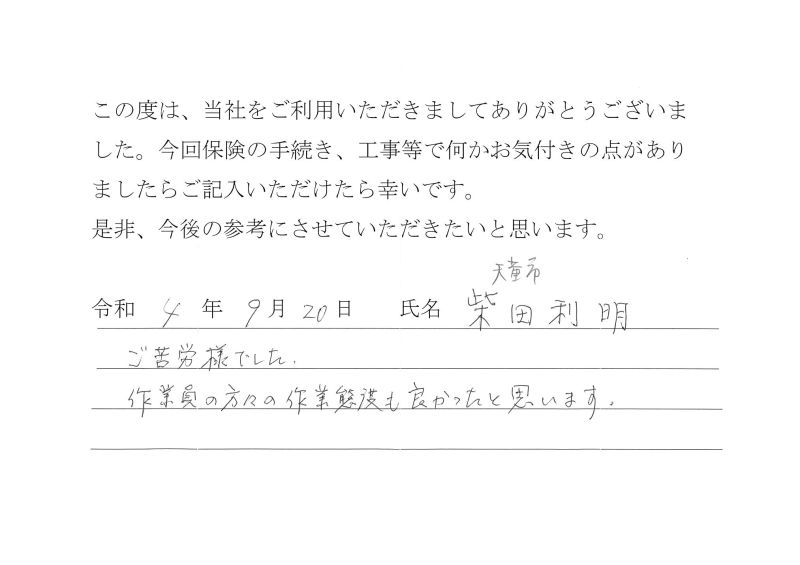 この度は、当社をご利用いただきましてありがとうございま
した。今回保険の手続き、工事等で何かお気付きの点があり
ましたらご記入いただけたら幸いです。
是非、今後の参考にさせていただきたいと思います。
天童市
令和 4 年 9月 20日 氏名 柴田利明
ご苦労様でした.
作業員の方々の作業態度も良かったと思います.